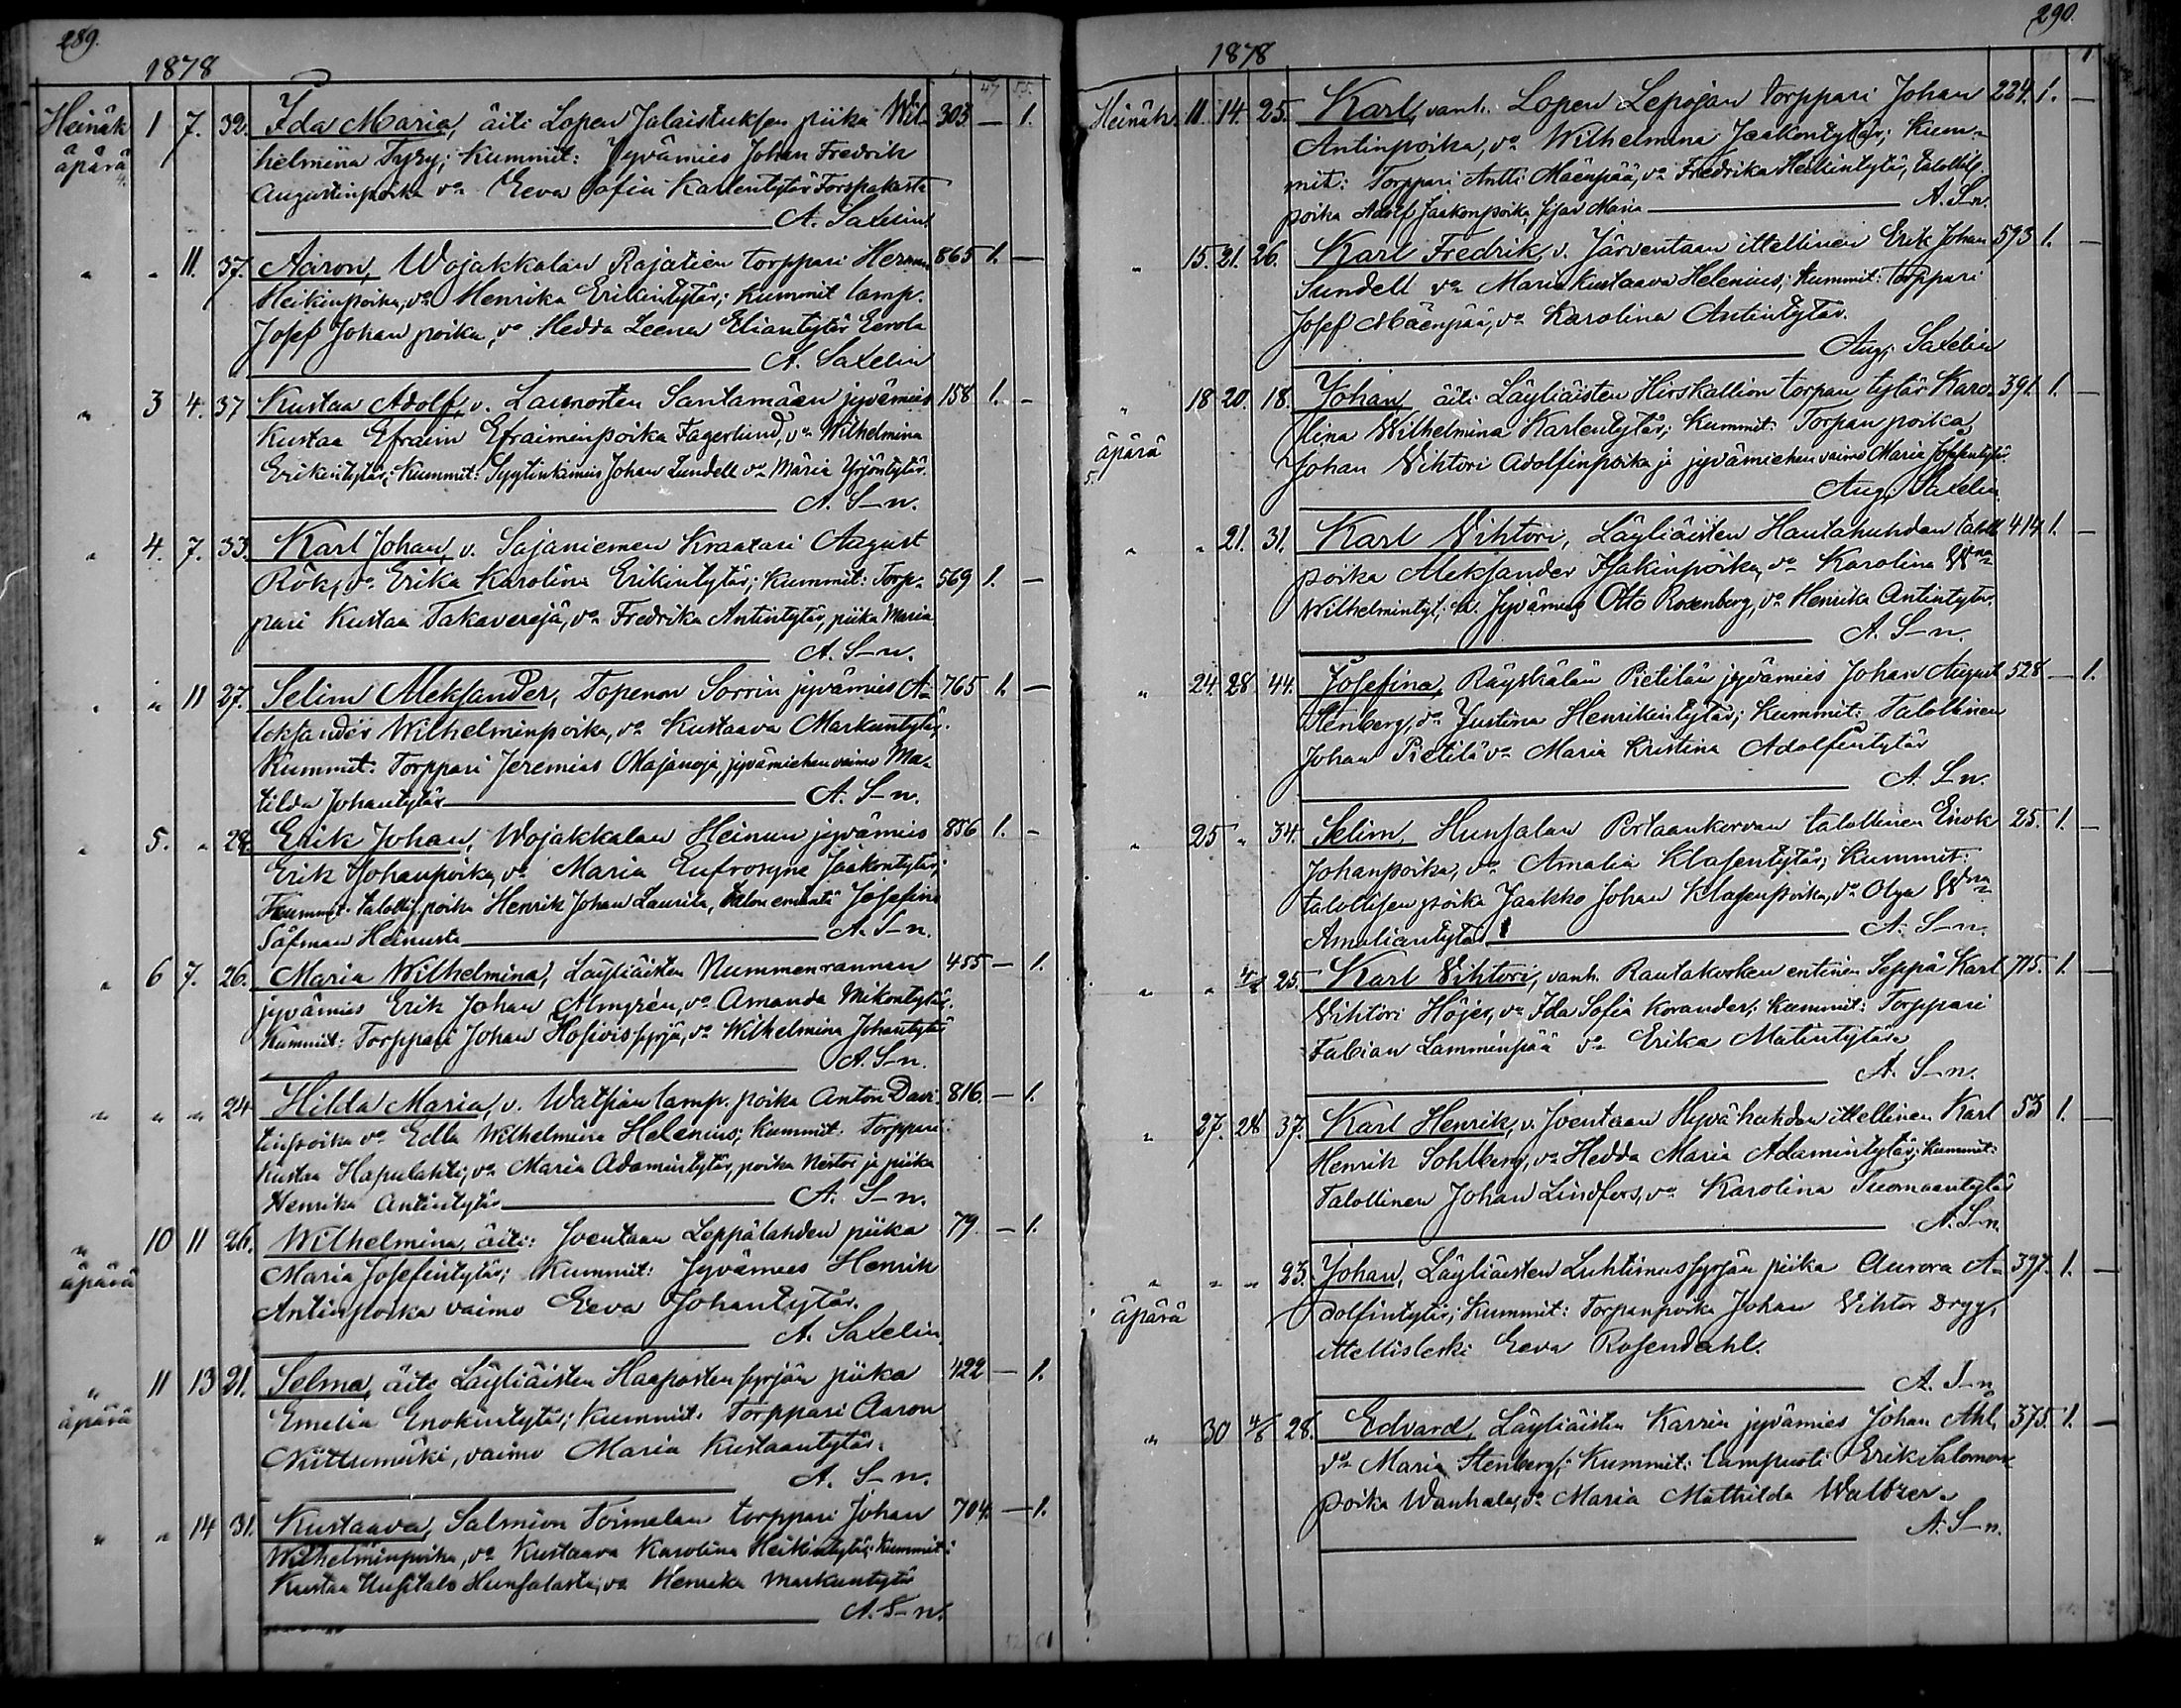 289.
1878
Heinäk 1 7. 32. Ida Maria, äiti Lopen Jalaistuksen piika Wil- 303 — 1.
äpärä helmiina Tyry; Kummit: Jyvämies Johan Fredrik
4. Augustinpoika va Eeva Sofia Kaarlentytär Forspakasta
A. Saxelin.
" " 11. 37. Aaron, Wojakkalan Rajatien torppari Herman 865 1. —
Heikinpoika, va Henrika Erikintytär; Kummit lamp.
Josef Johan poika, va Hedda Leena Eliantytär Eerola
A. Saxelin
" 3 4. 37 Kustaa Adolf, v. Launosten Santamäen jyvämies 158 1. -
Kustaa Efraim Efraiminpoika Fagerlund, va Wilhelmina
Erikintytär; Kummit: Syytinkimies Johan Lundell va Maria Yrjöntytär.
A. S-n.
" 4. 7. 33. Karl Johan, v. Sajaniemen Kraatari August
Rök, va Erika Karolina Erikintytär; Kummit: Torp- 569 1. —
pari Kustaa Takaveräjä, va Fredrika Antintytär, piika Maria
A. S-n.
" " 11 27. Selim Aleksander, Topenon Sorrin jyvämies A- 765 1. —
leksander Wilhelminpoika, va Kustaava Markuntytär.
Kummit: Torppari Jeremias Ohajanoja, jyvämiehen vaimo Ma-
tilda Johantytär A. S-n.
" 5. " 28. Erik Johan, Wojakkalan Heinun jyvämies 856 1. -
Erik Johanpoika, va Maria Eufrosyne Jaakontytär;
Kummit. talollis. poika Henrik Johan Laurila, talon emäntä Josefina
Säfman Heinusta A. S-n.
" 6 7. 26. Maria Wilhelmina, Läyliäisten Nummenrannan 455 — 1.
jyvämies Erik Johan Almgrén, va Amanda Mikontytär.
Kummit: Torppari Johan Hosivissyrjä, va Wilhelmina Johantytär
A. S-n.
" " " 24 Hilda Maria, v. Watsian lamp. poika Anton Davi- 816. — 1.
tinpoika va Edla Wilhelmiina Helenius; Kummit: Torppari
Kustaa Hapulahti, va Maria Adamintytär, poika Nestor ja piika
Henrika Antintytär A. S-n.
" 10 11 26. Wilhelmina, äiti: Joentaan Leppälahden piika 79. — 1.
äpärä Maria Josefintytär; Kummit: Jyvämies Henrik
Antinpoika vaimo Eeva Johantytär.
A. Saxelin
" 11 13 21. Selma, äiti Läyliäisten Haapostensyrjän piika 422 — 1.
äpärä Emelia Enokintytär; Kummit. Torppari Aaron
Niittumäki, vaimo Maria Kustaantytär.
A. S-n.
" " 14 31. Kustaava, Salmion Toimelan torppari Johan 704. — 1.
Wilhelminpoika, va Kustaava Karolina Heikintytär; Kummit:
Kustaa Uusitalo Hunsalasta, va Henrika Markuntytär
A. S-n.
290.
1878
Heinäk. 11. 14. 25. Karl, vanh. Lopen Lepojan torppari Johan 224. 1. —
Antinpoika, va Wilhelmina Jaakontytär; Kum-
mit: Torppari Antti Mäenpää, va Fredrika Heikintytä, talollis.
poika Adolf Jaakonpoika, sisar Maria A. S-n.
" 15. 21. 26. Karl Fredrik, v. Järventaan ittellinen Erik Johan 593 1. —
Sundell va Maria Kustaava Helenius; Kummit: Torppari
Josef Mäenpää, va Karolina Antintytär.
Aug. Saxelin
" 18 20. 18. Johan, äiti Läyliäisten Hirskallion torpan tytär Karo- 391. 1. —
äpärä lina Wilhelmina Karlentytär; Kummit: Torpan poika,
5. Johan Vihtori Adolfinpoika ja jyvämiehen vaimo Maria Josefintytär.
Aug. Saxelin
" " 21. 31. Karl Vihtori, Läyliäisten Hautahuhdan taloll. 414 1. —
poika Aleksander Isakinpoika, va Karolina Wna
Wilhelmintyt; ku. Jyvämies Otto Rosenberg, va Henrika Antintytär.
A. S-n.
" 24. 28 44. Josefina, Räyskälän Pietilän jyvämies Johan August 528 — 1.
Stenberg, va Justina Henrikintytär; Kummit: Talollinen
Johan Pietilä va Maria Kristina Adolfintytär
A. S-n.
" 25 " 34. Selim, Hunsalan Portaankorvan talollinen Enok 25. 1. —
Johanpoika, va Amalia Klasentytär; Kummit:
talollisen poika Jaakko Johan Klasenpoika, va Olga Wna
Amaliantytär A. S-n.
" " 4/8 25. Karl Vihtori, vanh. Rautakosken entinen Seppä Karl 775. 1. —
Vihtori Höijer, va Ida Sofia Korander; Kummit: Torppari
Fabian Lamminpää va Erika Matintytär
A. S-n.
" 27. 28 37. Karl Henrik, v. Joentaan Hyvähuhdan ittellinen Karl 53 1. —
Henrik Sohlberg, va Hedda Maria Adamintytär; Kummit:
Talollinen Johan Lindfors, va Karolina Tuomaantytär
A. S-n.
" " " 23. Johan, Läyliäisten Luhtimussyrjän piika Aurora A- 397. 1. —
äpärä dolfintytär; Kummit: Torpanpoika Johan Vihtor Drygg,
ittellisleski Eeva Rosendahl.
A. S-n
" 30 4/8 28. Edvard, Läyliäisten Karrin jyvämies Johan Ahl, 375. 1. —
va Maria Stenberg; Kummit: lampuoti Erik Salomon-
poika Wanhala, va Maria Mathilda Waltzer.
A. S-n.